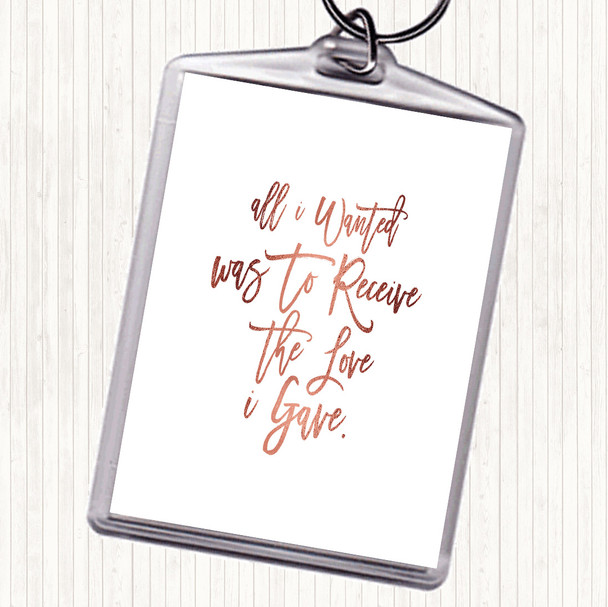 all i Wanted
was to Receive
the Love
i Gave.